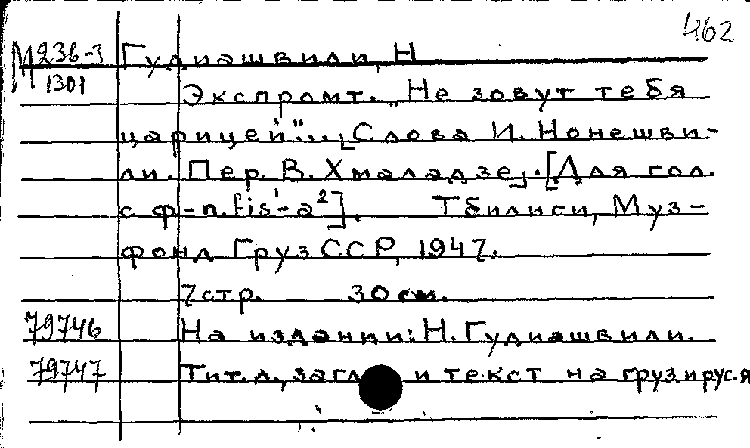 462
М 236-3 Гудиашвили, Н
1301
Экспромт. „Не зовут тебя
царицей"... [Слова И. Нонешви-
ли. Пер. В. Хмаладзе]. [Для гол.
с ф-п. fis¹-a²]. Тбилиси, Муз-
фонд Груз ССР, 1947.
7стр. 30 см.
79746 На издании: Н. Гудиашвили.
79747 Тит. л., загл. и текст на груз и рус. я